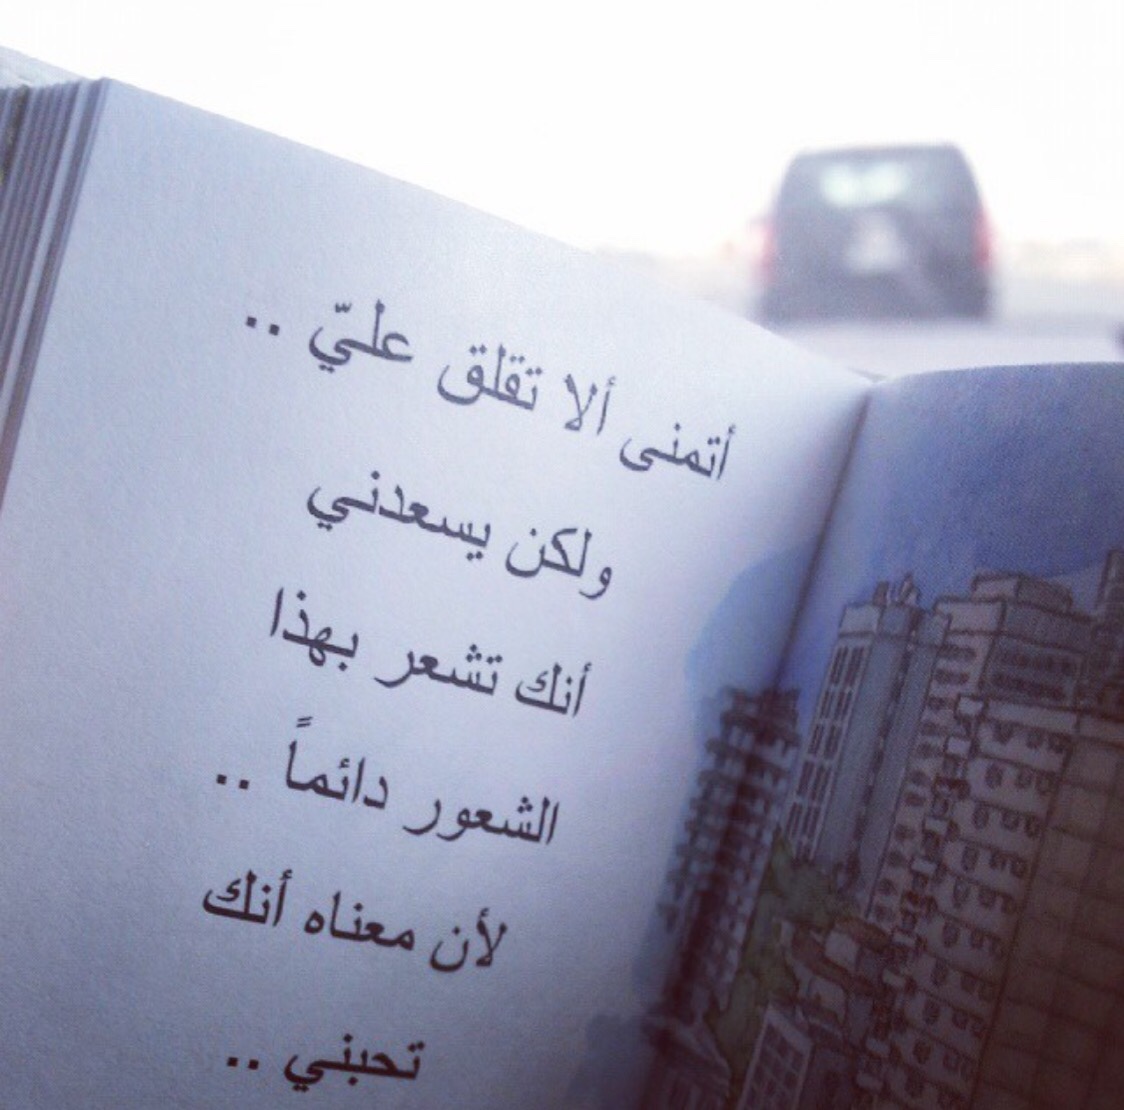 أتمنى ألا تقلق عليّ ..
ولكن يسعدني
أنك تشعر بهذا
الشعور دائماً ..
لأن معناه أنك
تحبني ..